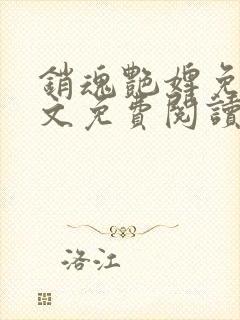 銷魂艷婢免
文免費閱讀
洛江